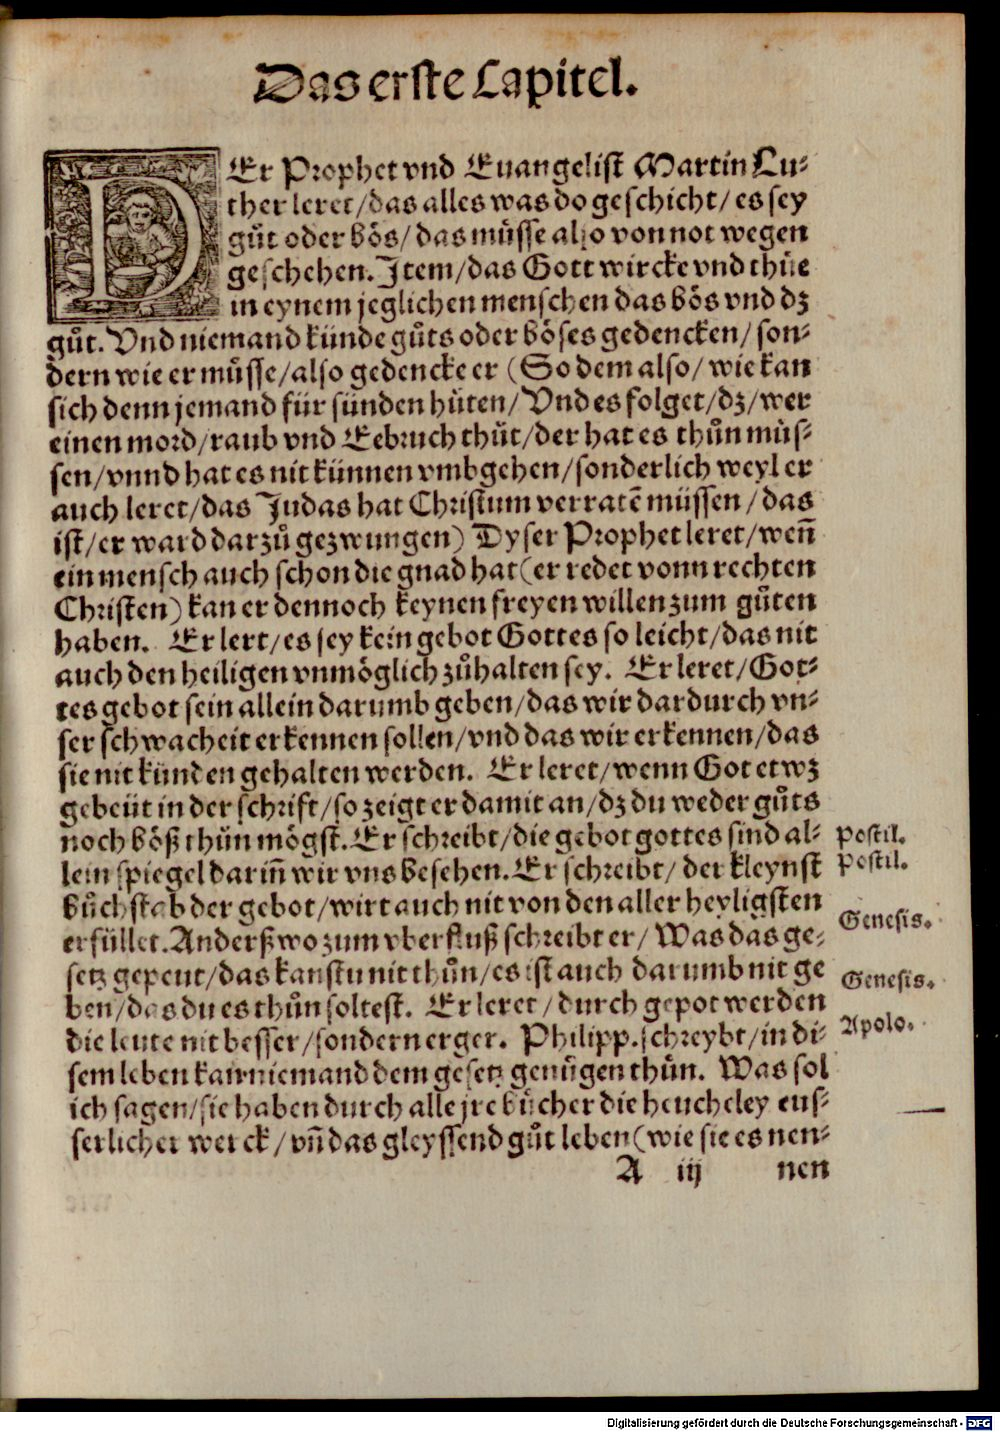 Das erste Capitel.
DEr Prophet vnd Euangelist Martin Lu⸗
ther leret/das alles was do geschicht/es sey
gůt oder bös/das müsse also von not wegen
geschehen. Item/das Gott wircke vnd thüe
in eynem jeglichen menschen das bös vnd dz
gůt. Vnd niemand künde gůts oder böses gedencken/son⸗
dern wie er müsse/also gedencke er (So dem also/wie kan
sich denn jemand für sünden hüten/Vnd es folget/dz/wer
einen mord/raub vnd Eebruch thůt/der hat es thůn müs⸗
sen/vnnd hat es nit künnen vmbgehen/sonderlich weyl er
auch leret/das Judas hat Christum verratē müssen/das
ist/er ward darzů gezwungen) Dyser Prophet leret/weñ
ein mensch auch schon die gnad hat (er redet vonn rechten
Christen) kan er dennoch keynen freyen willen zum gůten
haben. Er lert/es sey kein gebot Gottes so leicht/das nit
auch den heiligen vnmöglich zůhalten sey. Er leret/Got⸗
tes gebot sein allein darumb geben/das wir dardurch vn⸗
ser schwacheit erkennen sollen/vnd das wir erkennen/das
sie nit künden gehalten werden. Er leret/wenn Got etwz
gebeüt in der schrift/so zeigt er damit an/dz du weder gůts
noch böß thůn mögst. Er schreibt/die gebot gottes sind al⸗
lein spiegel dariñ wir vns besehen. Er schreibt/der kleynst
bůchstab der gebot/wirt auch nit von den aller heyligsten
erfüllet. Anderßwo zum vberfluß schreibt er/Was das ge⸗
setz gepeut/das kanstu nit thůn/es ist auch darumb nit ge
ben/das du es thůn soltest. Er leret/durch gepot werden
die leute nit besser/sondern erger. Philipp. schreybt/in di⸗
sem leben kan niemand dem gesetz genůgen thůn. Was sol
ich sagen/sie haben durch alle jre bücher die heucheley eus⸗
serlicher werck/vñ das gleyssend gůt leben (wie sie es nen⸗
A iij nen
Postil.
Postil.
Genesis.
Genesis.
Apolo.
Digitalisierung gefördert durch die Deutsche Forschungsgemeinschaft - DFG